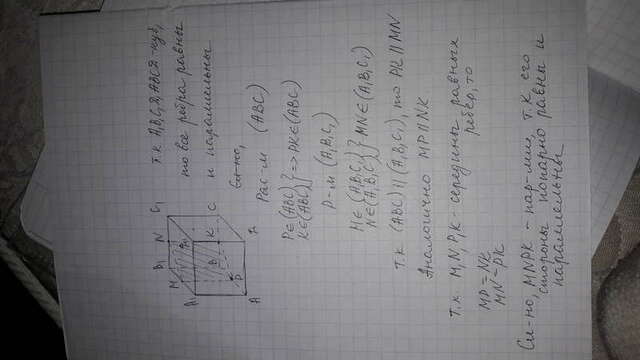 B₁ N C₁
M
A₁
K C
B
P
A
т.к A₁B₁C₁D₁ABCD - куб,
то все ребра равны
и параллельны
Сл-но,
Рас-м (ABC)
P∈(ABC) } => PK∈(ABC)
K∈(ABC)
Р-м (A₁B₁C₁)
M∈(A₁B₁C₁) } MN∈(A₁B₁C₁)
N∈(A₁B₁C₁)
т.к (ABC)∥(A₁B₁C₁), то PK∥MN
Аналогично MP∥NK
т.к M,N,P,K - середины равных
ребер, то
MP=NK
MN=PK
Сл-но, MNPK - пар-мм, т.к. его
стороны попарно равны и
параллельны